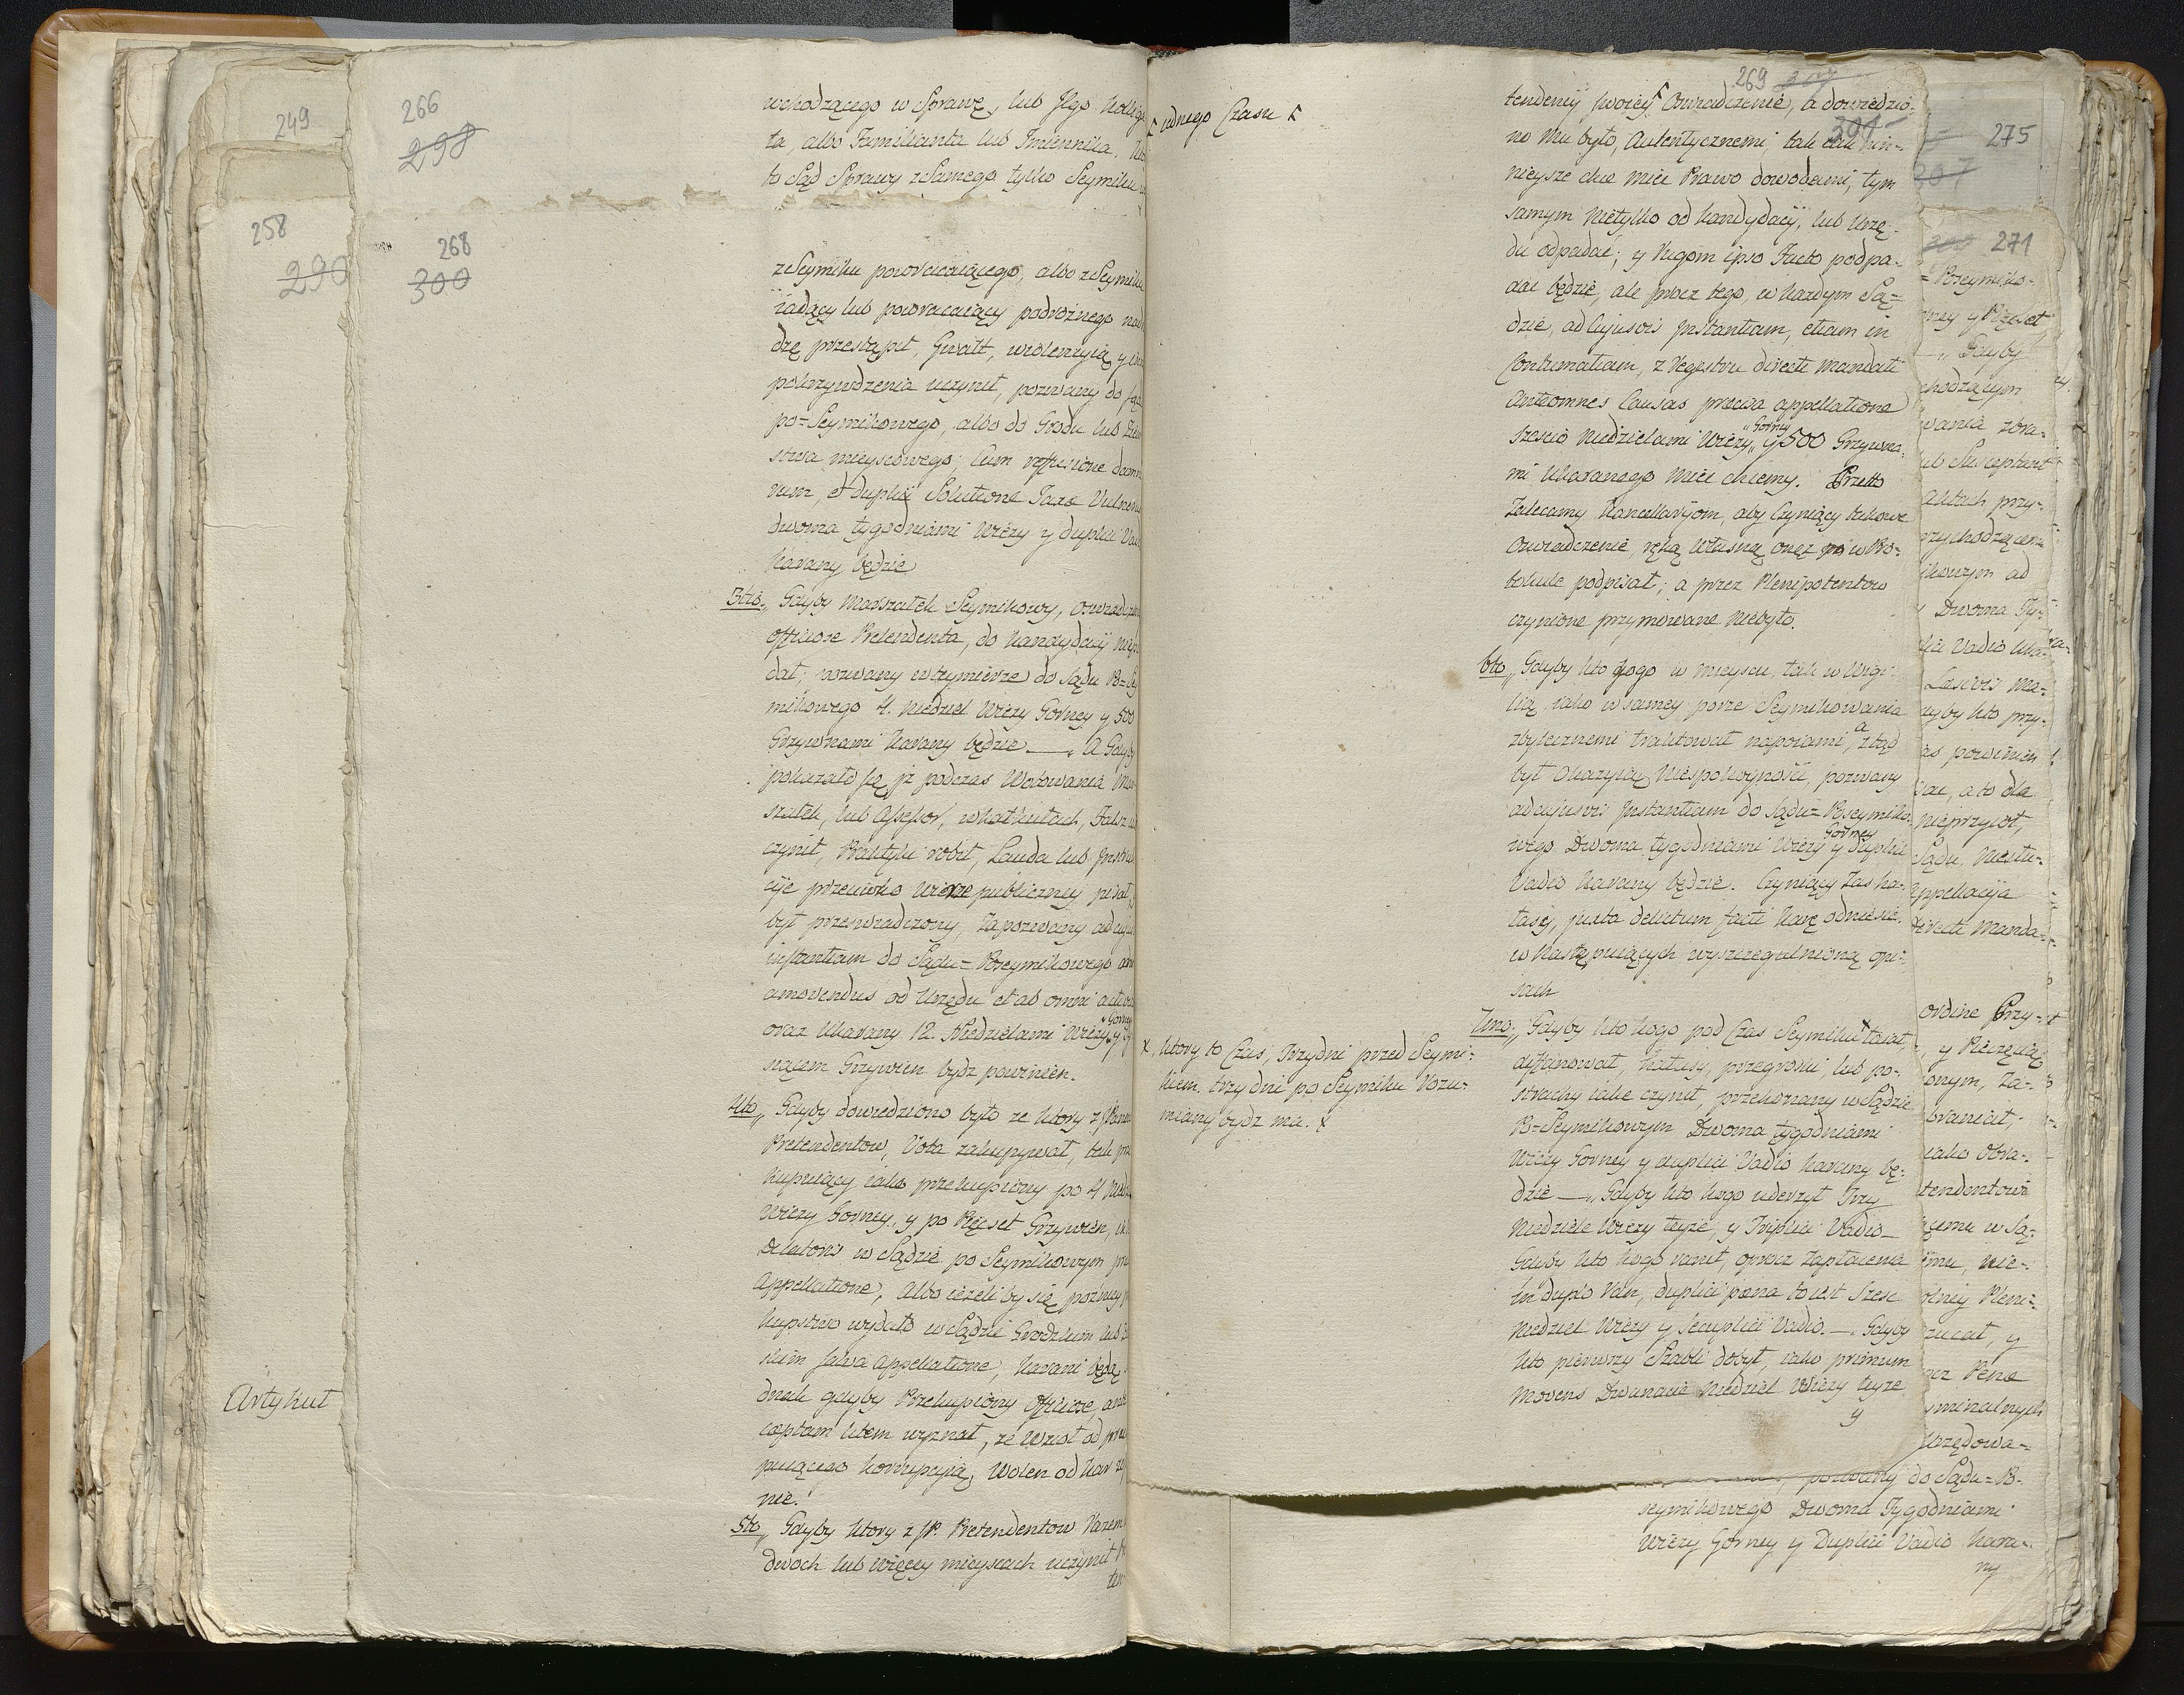 249
266
298
wchodzącego w Sprawę, lub Jego Kolliga
ta, albo Familianta lub Imiennika.
to Sąd Sprawy z Samego tylko Seymiku
258
290
268
300
z Seymiku powracaiącego, albo z Seymiku
iadący lub powracaiący podrożnego na
dzę przestąpił, Gwałt, wiolencyią y
pokrzywdzenia uczynił, pozwany do
po=Seymikowego, albo do Grodu lub Ziem
stwa mieyscowego; Cum refusione dam
rum, et duplici Solutione Juxe Vulneru
dwoma tygodniami Wieży y duplici Va
karany będzie
3tio. „ Gdyby Marszałek Seymikowy, oswiadcz
officiose Pretendenta, do kandydacÿ niepo
dał; pozwany w teymierze do Sądu Po=Sey
mikowego 4. Niedziel Wieży Gorney y 500
Grzywnami karany będzie. — „ A Gdyby
pokazało się, iż podczas Wotowania Mar
szałek, lub Assessor, w kalkułach, Fałsz u
czynił, Praktyki robił, Lauda lub Instru
cÿe przeciwko Wierze publiczney pisał,
był przeswiadczony, zapozwany ad cuju
instantiam do Sądu=Poseymikowego
amovendus od Urzędu et ab omni activi
oraz Ukarany 12. Niedzielami Wieży „Gorney y Ty
siącem Grzywien bydz powinien.
4to „ Gdyby dowiedziono było ze ktory z Panow
Pretendentow, Vota zakupywał, tak prze
kupuiący, iako przekupiony po 4 Niedz
Wieży Gorney, y po Pięcset Grzywien, in
Delatoris w Sądzie po Seymikowym pre
Appellatione, Albo ieżeli by się pozniey p
kupstwo wydało w Sądzie Grodzkim lub Z
skim salva Appellatione, karani będą.
dnak gdyby Przekupiony officiose, ante
captam litem wyznał, że Wziął od prze
puiącego korrupcyią, Wolen od kar zo
nie.
5to „ Gdyby ktory z JP. Pretendentow Razem
dwoch lub więcey mieyscach uczynił P
ten
Artykuł
iednego Czasu
269
301
tendencÿ swoiey Oswiadczenie, a dowiedzio=
no mu było, Autentycznemi, tak iak nin=
nieysze chce mieć Prawo dowodami, tym
samym Nietylko od kandydacÿ, lub Urzę=
du odpadać; y Rigom ipso Facto podpa=
dać będzie, ale prócz tego, w każdym Są=
dzie, ad Cujusvis Instantiam, etiam in
Contumatiam, z Regestru directi Mandati
Anteomnes Causas precisa appellatione
sześcią Niedzielami Wieży „Gorney y 500 Grzywna=
mi Ukaranego mieć chcemy. Przetto
Zalecamy Kancellaryom, aby Czyniący takowe
Oswiadczenie, ręką Własną oneż w Pro=
tokule podpisał; a przez Plenipotentow
czynione przymowane niebyło.
6to „ Gdyby kto kogo w mieyscu, tak w Wigi=
lią, iako w samey porze Seymikowania
zbytecznemi traktował napoiami, a ztąd
był Okazyią Niespokoyności, pozwany
ad cujusvis Instantiam do Sądu=Poseymiko=
wego Dwoma tygodniami Wieży Gorney y duplici
Vadio karany będzie. Czyniący zas ha=
łasy, juxta delictum facti karę odniesie,
w Następuiących wyszczegulnioną opi=
sach
7mo „ Gdyby kto kogo pod Czas Seymiku x łaiał,
dyffamował, hałasy, przegrożki, lub po=
strachy iakie czynił, przekonany w Sądzie
Po=Seymikowym Dwoma tygodniami
Wieży Gorney y duplici Vadio karany bę=
dzie — „ Gdyby kto kogo uderzył Trzy
Niedziele Wieży teyże, y Triplici Vadio_
Gdyby kto kogo ranił, oprocz Zapłacenia
in duplo Ran, duplici pæna to iest Szesc
Niedziel Wieży y Sexuplici Vadio. — „ Gdyby
kto pierwszy Szabli dobył, iako primum
Movens Dwanaście Niedziel Wieży teyże
y
x, ktory to Czas, Trzy dni przed Seymi=
kiem, trzy dni po Seymiku Rozu=
miany bydz ma. x
275
307
271
= Poseymiko=
rney y Pięćset
„ Gdyby
chodzącym
wania zbra=
ub Susceptant
aktach przy=
rzychodzącem
ikowym ad
Dwoma Ty=
lici Vadio
Lascivis Ma=
zyby kto przy=
as powinien
iac, a to dla
nieprzyiął,
Sądu, Niestu=
Appellacya
directi Manda=
ordine Przy=
y Pieczęcią
onym, Za=
braniał;
iako obra=
tendentowi
iącemu w Są=
emu, nie=
olney Pleni=
zucał, y
rez Pene
yminalnych
Urzędowa=
pozwany do Sądu=Po=
seymikowego Dwoma Tygodniami
Wieży Gorney y Duplici Vadio kara=
ny